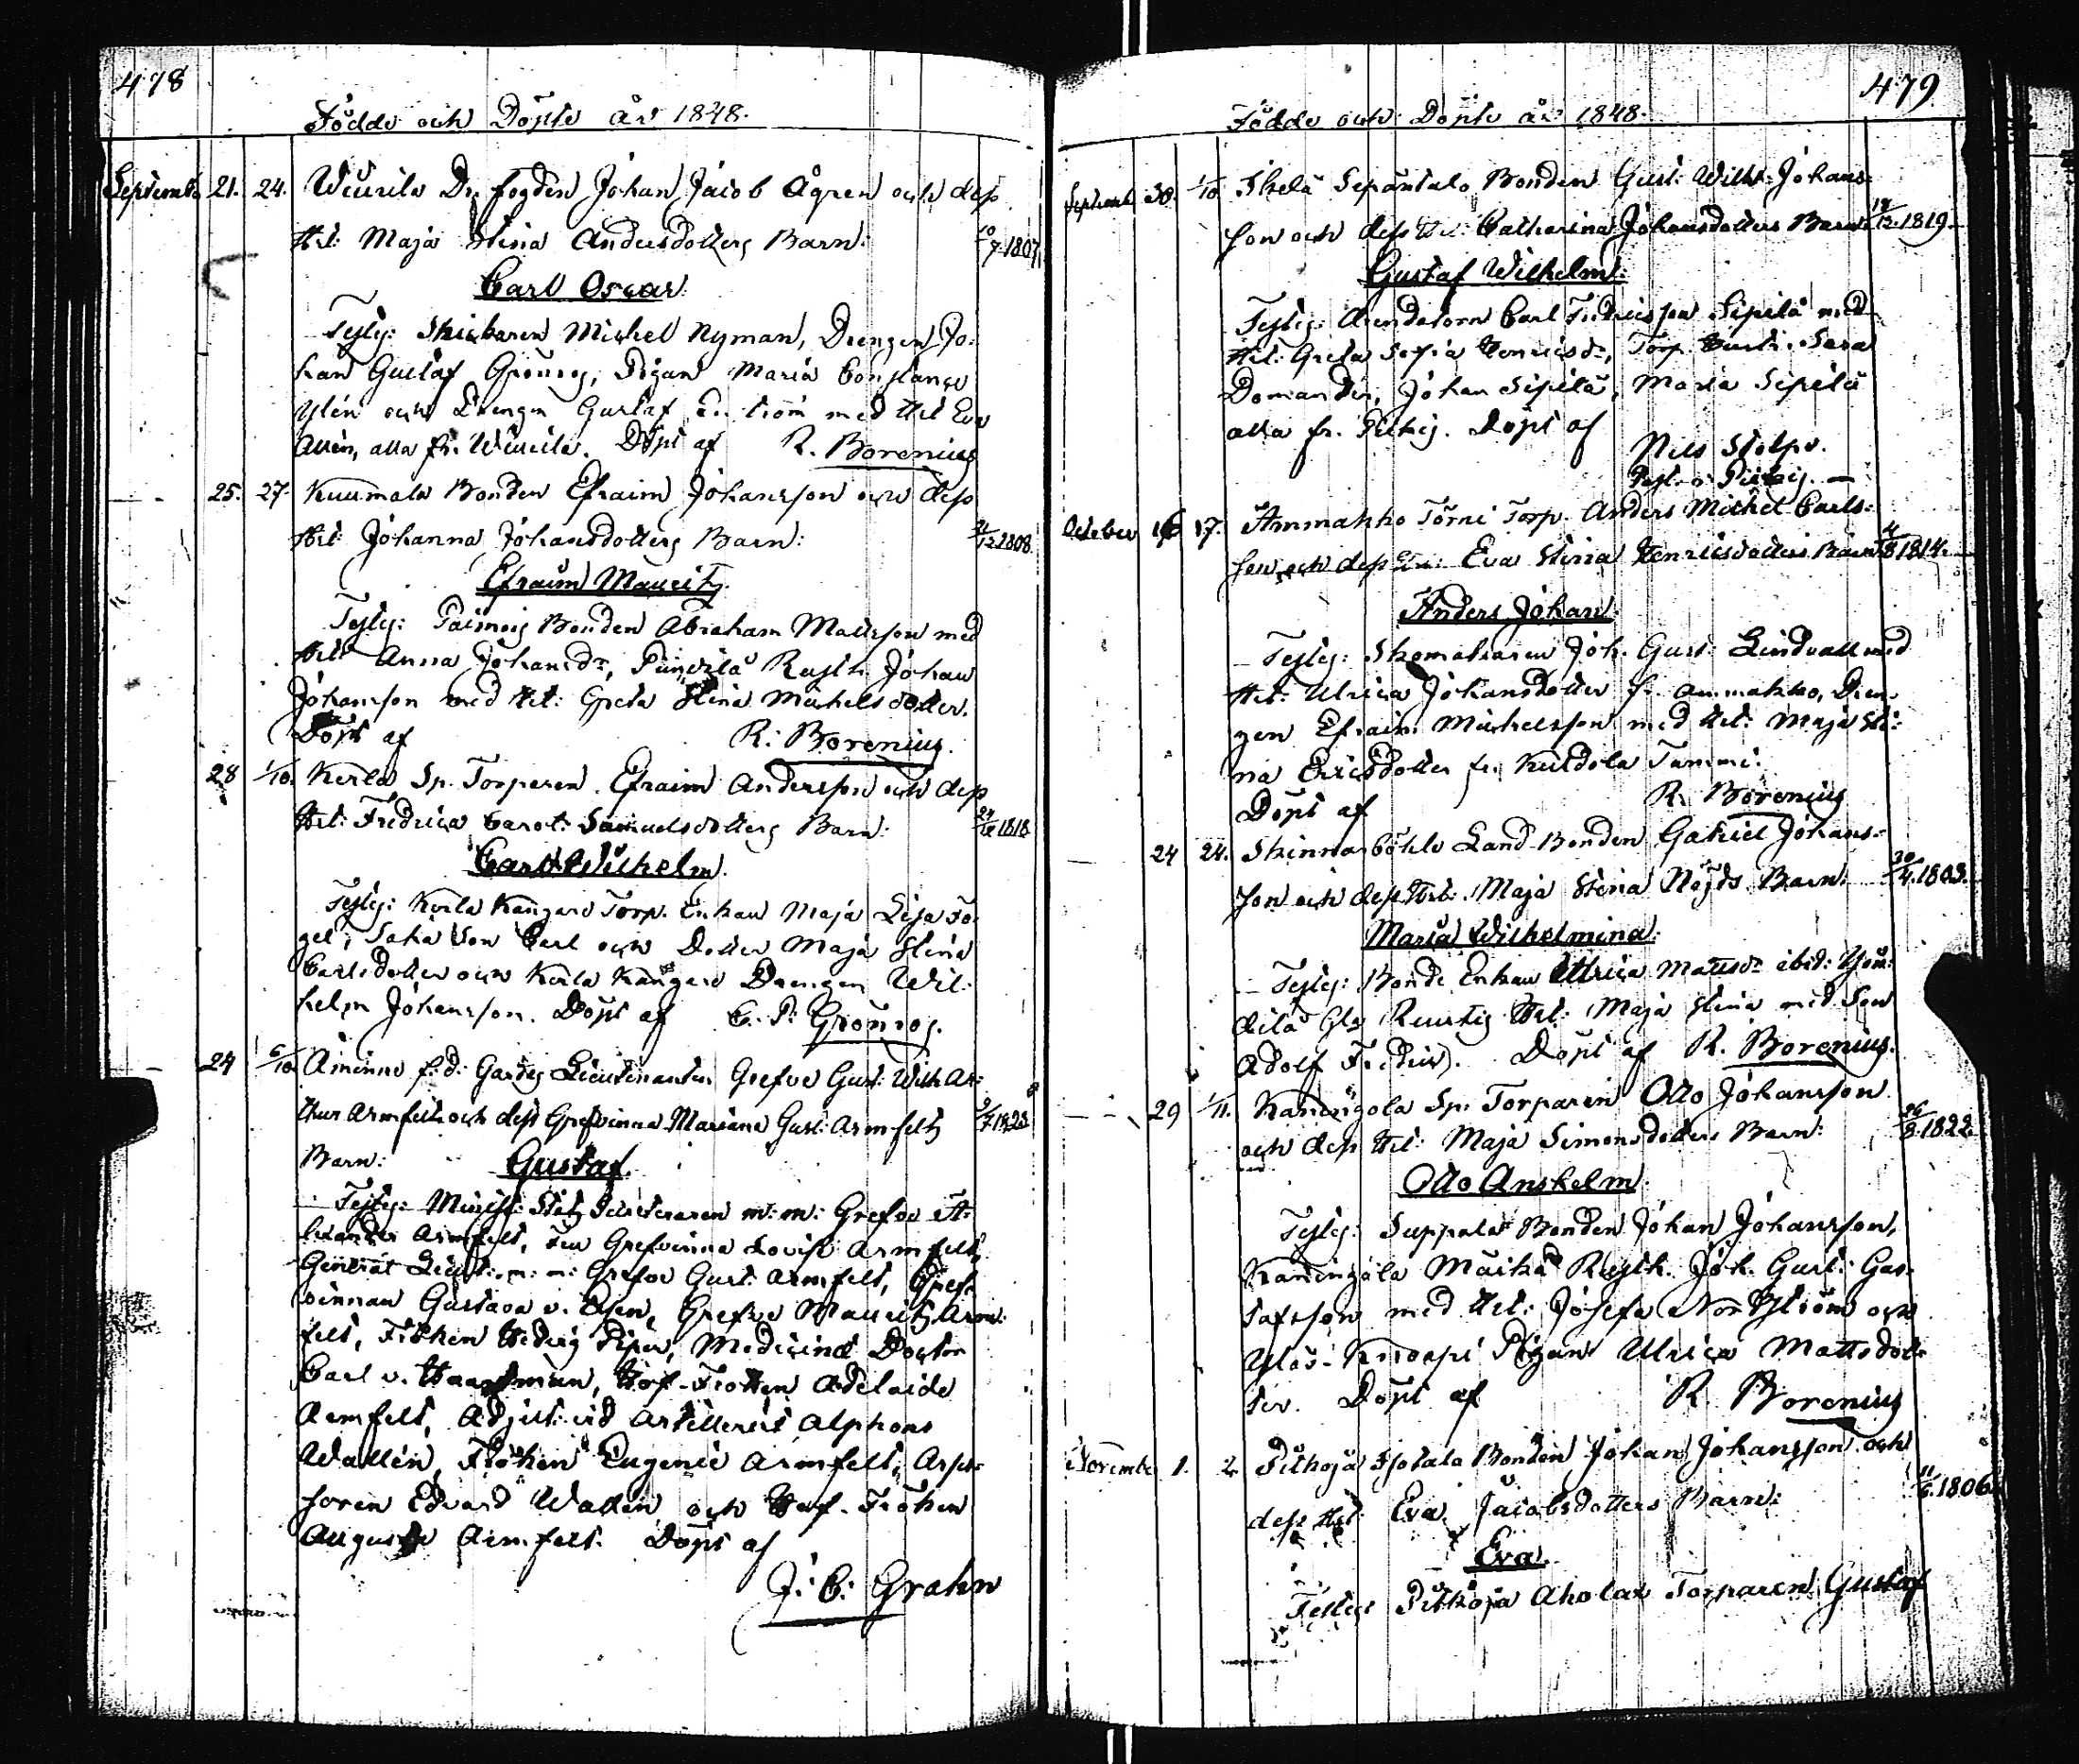 478
Födde och Döpte år 1848.
Septembr 21. 24. Wiurila Dr. fogden Johan Jacob Ågren och dess
Hst: Maja Stina Andersdotters Barn: 10/7 1807.
Carl Oscar.
Testes: Snickaren Michel Nyman, Drengen Jo-
han Gustaf Grönroos, Pigan Maria Constance
Ylén och Drengen Gustaf med Hst Eva
alla fr. Wiurila. Döpt af R. Borenius
25. 27. Kuumala Bonden Efraim Johansson och dess
Hst: Johanna Johansdotters Barn: 12 1808.
Efraim Mauritz.
Testes: Bonden Abraham Mattsson med
Hst Anna Johansdr, Rusth. Johan
Johansson med Hst: Greta Stina Michelsdotter.
Döpt af R: Borenius.
28 1/10. Kerla Sp. Torparen Efraim Andersson och dess
Hst: Fredrica Carol: Samuelsdotters Barn: 1818
Carl Wilhelm.
Testes: Kerla Kangare Torp. Enkan Maja Lisa Fo-
gel, Son Carl och Dotter Maja Stina
Carlsdotter och Kerla Kangare Drengen Wil-
helm Johansson. Döpt af Grönroos.
24 6/10 Åminne f.d. Gardes Lieutenanten Grefve Gust: Wilh Ar-
thur Armfelt och dess Grefvinna Mariana Gust: Armfelts 1823
Barn: Gustaf.
Testes: Minist: Stats Secreteraren m: m: Grefve A-
lexander Armfelt, Fru Grefvinna Lovise Armfelt,
General Lieut: m: m: Grefve Gust: Armfelt, Gref-
vinnan Gustava v. Grefve Mauritz Arm-
felt, Fröken Hedvig Piper, Medicinæ Doctor
Carl v. Haartman, Hof-Fröken Adelaide
Armfelt, Adjut: vid Artilleriet Alphons
Wallén, Fröken Eugenie Armfelt, Asses-
soren Edvard Wallén och Hof-Fröken
Auguste Armfelt. Döpt af
J: C: Grahn
479
Födde och Döpte år 1848.
Septemb 30. 1/10 Bonden Gust: Wilh: Johans-
son och dess Hst: Catharina Johansdotters Barn: 18/12 1819.
Gustaf Wilhelm.
Testes: Arendatorn Carl Fredricsson Sipilä med
Hst: Greta Sofia Henricsdr, Torp. Sara
Johan Sipilä, Maria Sipilä
alla fr. Pickis. Döpt af
Nils Stolpe.
Past. i Pickis.
October 16 17. Ammakko Törni Torp. Anders Michel Carls-
son och dess Eva Stina Henricsdotters Barn 1814.
Anders Johan.
Testes: Skomakaren Joh. Gust: Lindvall med
Hst: Ulrica Johansdotter fr. Ammakko, Dren-
gen Efraim Michelsson med Hst: Maja Sti-
na Ericsdotter fr. Tammi.
Döpt af R. Borenius
24 24. Skinnarböhle Land-Bonden Gabriel Johans-
son och dess Hst: Maja Stina Nöjds Barn. 30/4 1803.
Maria Wilhelmina.
Testes: Bonde Enkan Ulrica Mattsdr ibid:
Hst: Maja Stina med Son
Adolf Fredric. Döpt af R. Borenius.
29 1/11. Kaningola Sp. Torparen Otto Johansson
och dess Hst: Maja Simonsdotters Barn: 26/8 1822
Otto Anshelm.
Testes: Suppala Bonden Johan Johansson,
Kaningola Rusth. Joh. Gust: Gus-
tafsson med Hst: Josefa och
Pigan Ulrica Mattsdot-
ter. Döpt af R. Borenius
November 1. 2. Pitkoja Bonden Johan Johansson och
dess Hst Eva Jacobsdotters Barn: 11/6 1806
Eva.
Testes Pitkoja Ahola Torparen Gustaf